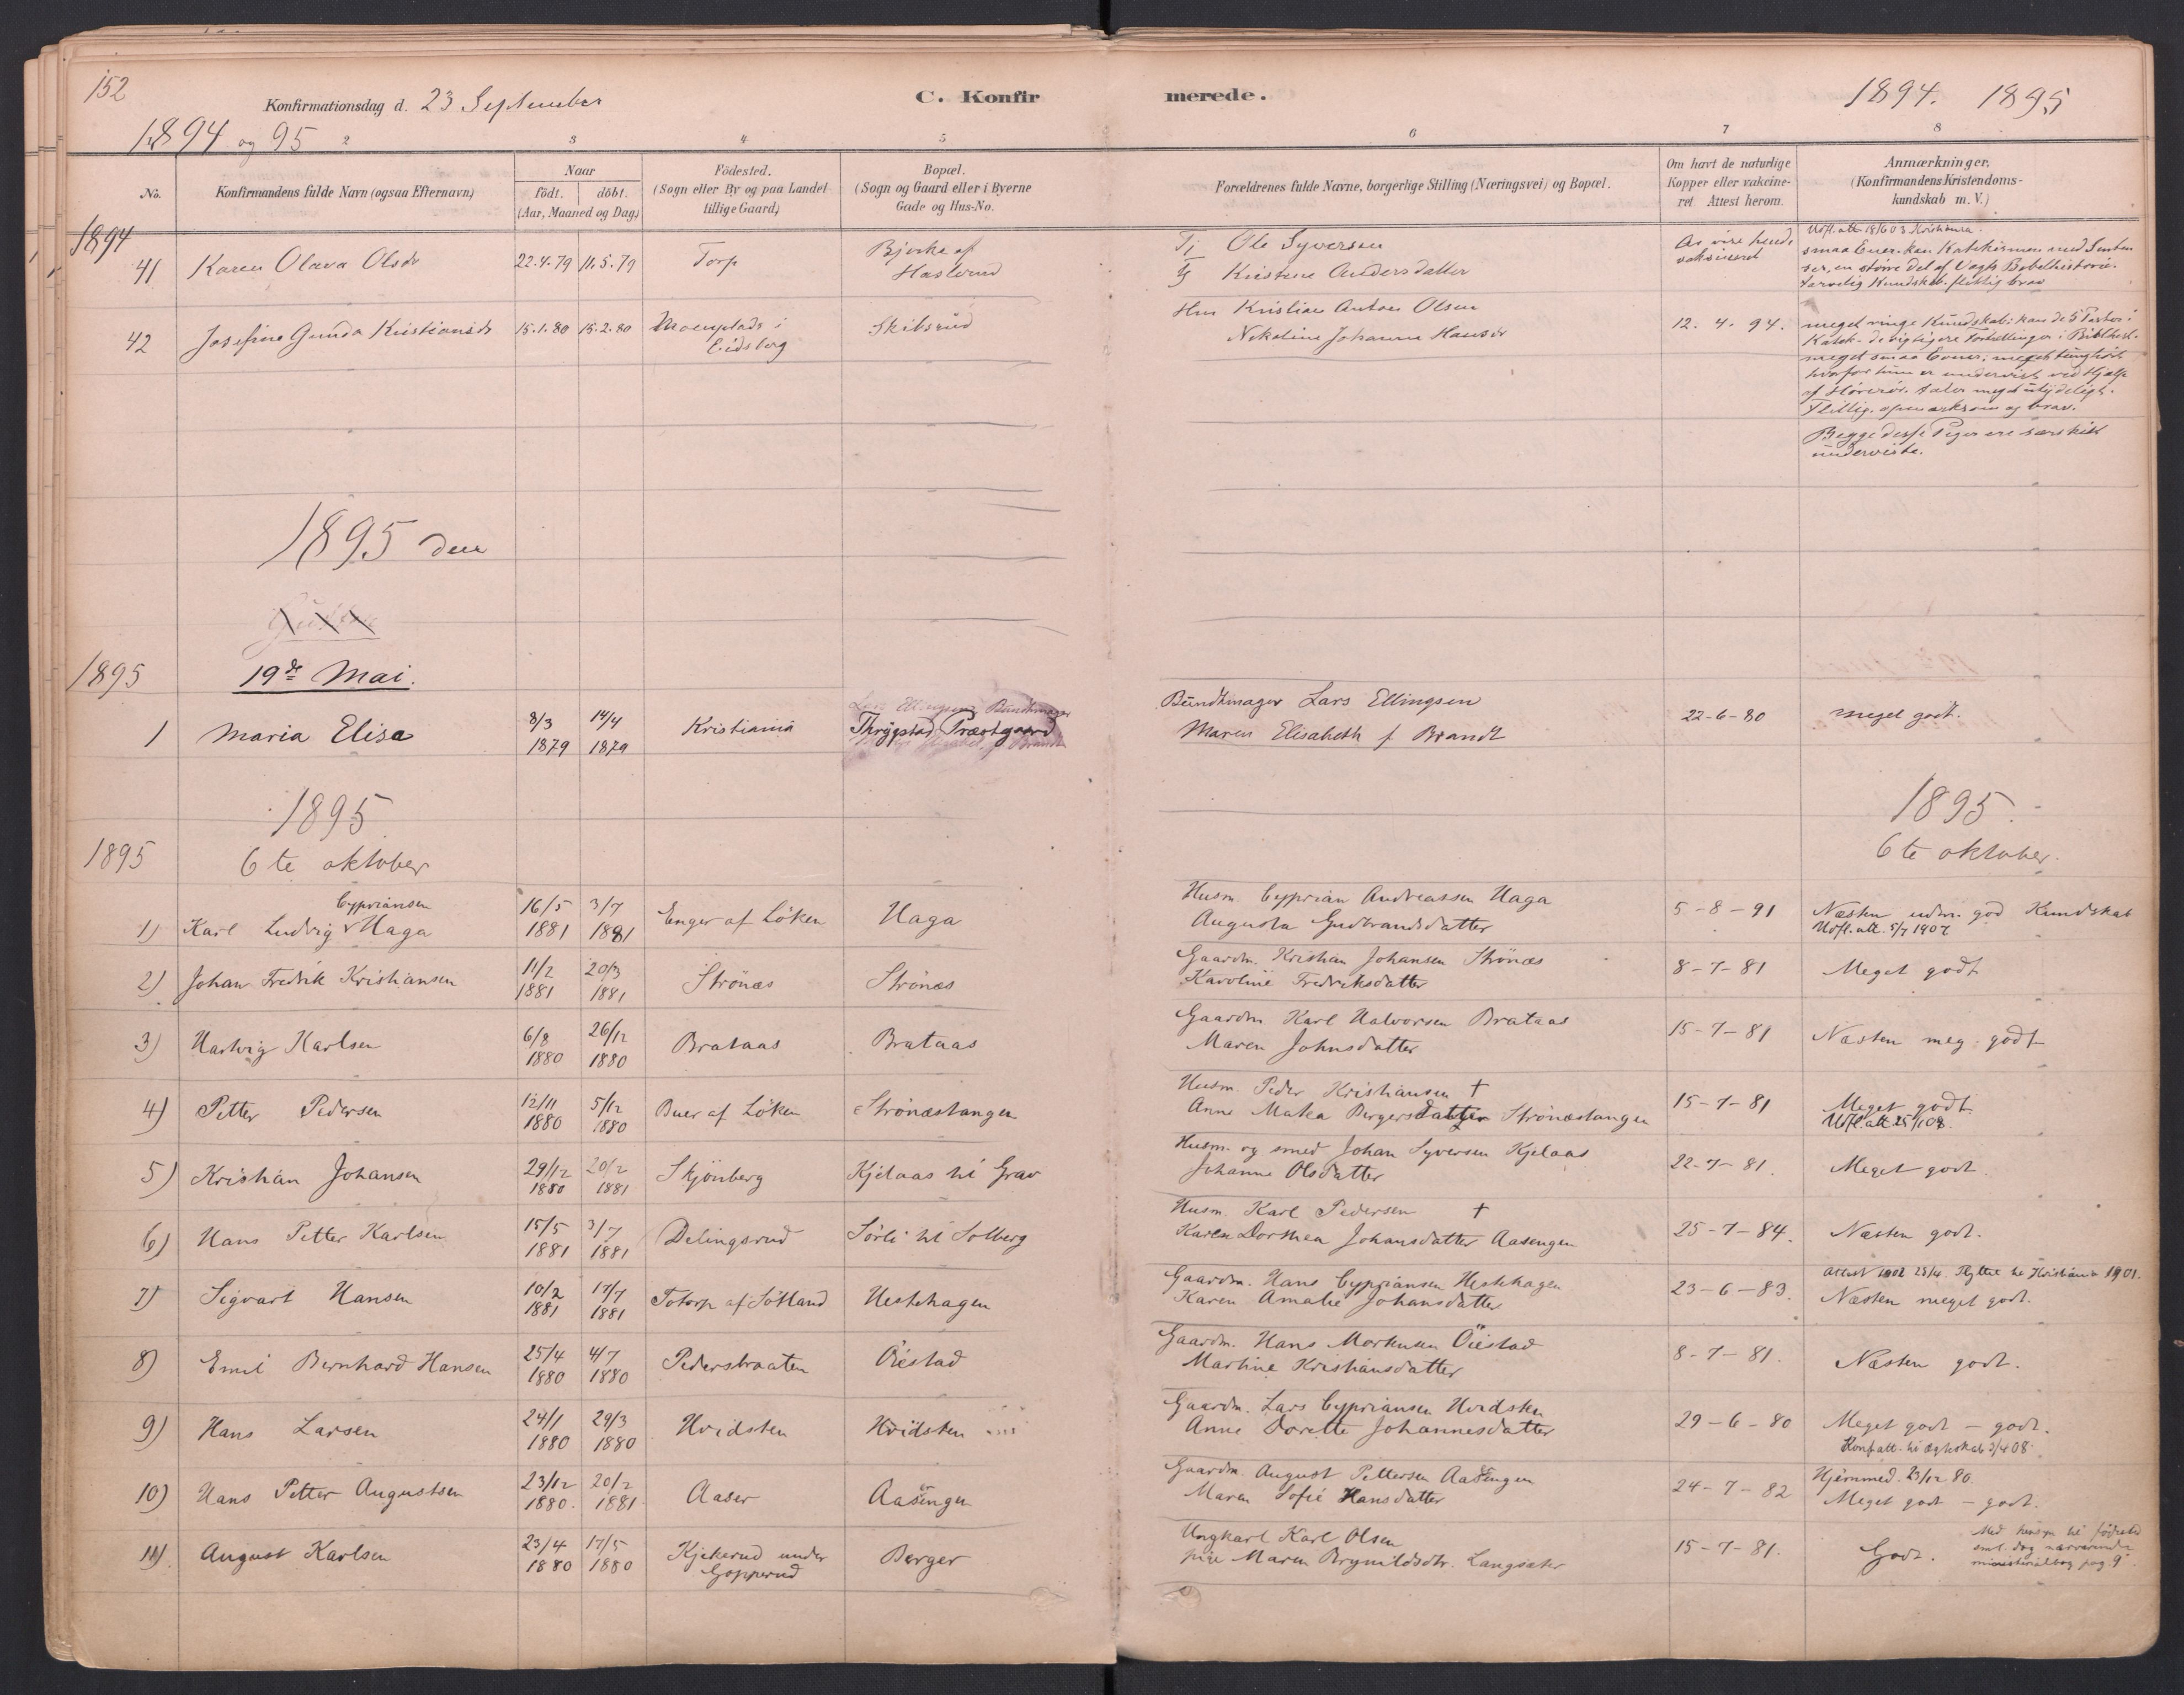 152
Konfirmationsdag d. 23 September
C. Konfirmerede.
1894. 1895
1894 og 95
2 3 4 5 6 7 8
No.
Konfirmandens fulde Navn (ogsaa Efternavn)
Naar
födt. döbt.
(Aar, Maaned og Dag)
Födested.
(Sogn eller By og paa Landet
tillige Gaard)
Bopæl.
(Sogn og Gaard eller i Byerne
Gade og Hus-No.
Forældrenes fulde Navne, borgerlige Stilling (Næringsvei) og Bopæl.
Om havt de naturlige
Kopper eller vakcine-
ret Attest herom.
Anmærkninger.
(Konfirmandens Kristendoms-
kundskab m. V.)
1894
41 Karen Olava Olsdr 22.4.79 11.5.79 Torp Bjerke af
Haslerud
Tj Ole Syversen
Tj Kirstine Andersdatter
Ar vise hende
vaksineret
Utfl. att 18/6 03 Kristiania.
smaa Evner. kan Katekismen med
en större del af Vogts Bibelhistorie.
tarvelig Kundskab. flittig brav
42 Josefine Gunda Kristiansdr 15.1.80 15.2.80 Moenplads i
Eidsberg
Skibsrud
Hm Kristian Anton Olsen
Nikoline Johanne Hansdr
12. 4. 94.
meget ringe Kundskab: kan de 5 Parter i
Katek- de vigtigere Fortællinger i Bibelhist.
meget smaa Evner; meget tunghört
hvorfor hun er undervist ved Hjælp
af Hörerör. taler meget utydeligt.
Flittig, opmærksom og brav.
Begge disse Piger ere særskilt
underviste.
1895 den
1895
19de Mai.
1 Maria Elisa 8/3 1879 14/4 1879 Kristiania
Lars Ellingsen Bundtmager
Thrygstad Præstgaard
Bundtmager Lars Ellingsen
Maren Elisabeth f Brandt
22-6-80
meget godt.
1895
1895
6te oktober
1895.
6te oktober.
1) Karl Ludvig Cypriansen Haga 16/5 1881 3/7 1881 Enger af Löken Haga
Husm. Cyprian Andreassen Haga
Augusta Gudbrandsdatter
5-8-91
Næsten udm. god Kundskab
Utfl. att. 5/7 1907
2) Johan Fredrik Kristiansen 11/2 1881 20/3 1881 Strönæs Strönæs
Gaardm. Kristian Johansen Strönæs
Karoline Fredriksdatter
8-7-81 Meget godt
3) Hartvig Karlsen 6/8 1880 26/12 1880 Brataas Brataas
Gaardm Karl Halvorsen Brataas
Maren Johnsdatter
15-7-81 Næsten meg. godt
4) Petter Pedersen 12/11 1880 5/12 1880 Buer af Löken Strönæstangen
Husm. Peder Kristiansen †
Anne Matea Bergersdatter Strönæstangen
15-7-81 Meget godt
Utfl. att 25/1 08.
5) Kristian Johansen 29/12 1880 20/2 1881 Skjönberg Kjelaas til Grav
Husm. og smed Johan Syversen Kjelaas
Johanne Olsdatter
22-7-81. Meget godt.
6) Hans Petter Karlsen 15/5 1881 3/7 1881 Delingsrud Sörli til Solberg
Husm. Karl Pedersen †
Karen Dorthea Johansdatter Aasengen
25-7-84. Næsten godt.
7) Sigvart Hansen 10/2 1881 17/7 1881 Totorp af Sötland Hestehagen
Gaardm. Hans Cypriansen Hestehagen
Karen Amalie Johansdatter
23-6-83.
attest 1902 25/4. Flyttet til Kristiania 1901.
Næsten meget godt.
8) Emil Bernhard Hansen 25/4 1880 4/7 1880 Pedersbraaten Öiestad
Gaardm. Hans Markusen Öiestad
Martine Kristiansdatter
8-7-81. Næsten godt.
9) Hans Larsen 24/1 1880 29/3 1880 Hvidsten Hvidsten
Gaardm. Lars Cypriansen Hvidsten
Anne Dorette Johannesdatter
29-6-80 Meget godt - godt.
Konf att. til ægteskab 3/4 08.
10) Hans Petter Augustsen 23/12 1880. 20/2 1881 Aaser Aasengen
Gaardm. August Pettersen Aasengen
Maren Sofie Hansdatter
24-7-82
Hjemmed. 23/12 80
Meget godt - godt.
11) August Karlsen 23/4 1880 17/5 1880 Kjekerud under
Gopperud
Berger
Ungkarl Karl Olsen
pige Maren Brynildsdtr. Langsæter
15-7-81. Godt.
Med hensyn til födested
smt. dog nærværende
ministerialbog pag. 9.